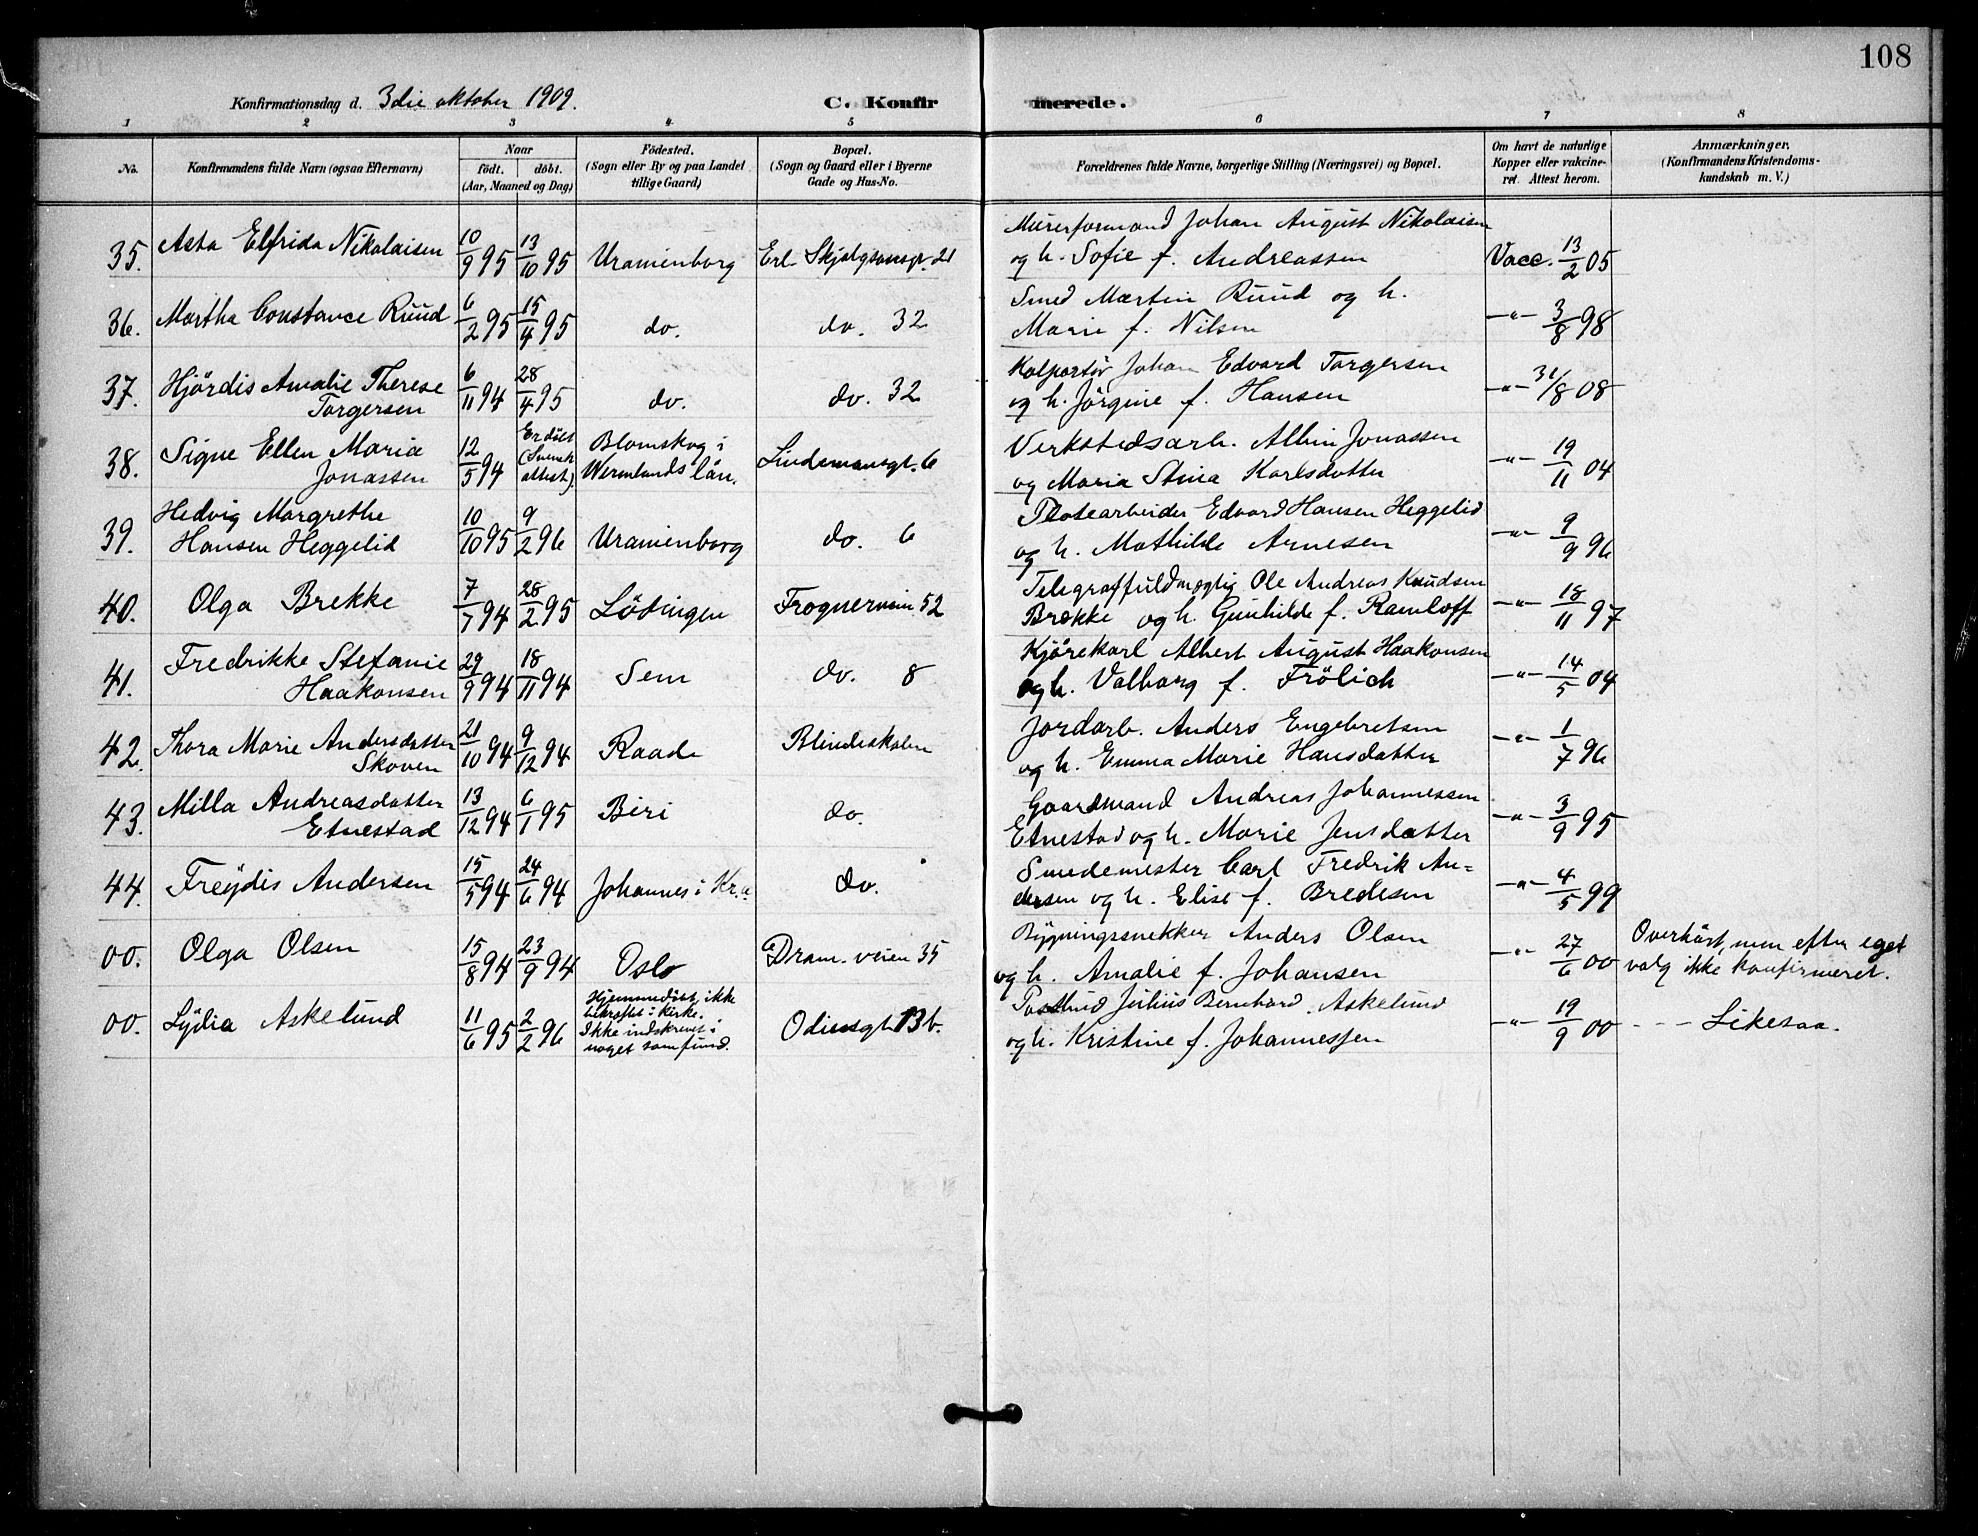 108
Konfirmationsdag d. 3die oktober 1909.
C. Konfirmerede.
1 2 3 4 5 6 7 8
No. | Konfirmandens fulde Navn (ogsaa Efternavn) | Naar födt. döbt. (Aar, Maaned og Dag) | Födested. (Sogn eller By og paa Landet tillige Gaard) | Bopæl. (Sogn og Gaard eller i Byerne Gade og Hus-No. | Forældrenes fulde Navne, borgerlige Stilling (Næringsvei) og Bopæl. | Om havt de naturlige Kopper eller vakcineret. Attest herom. | Anmærkninger. (Konfirmandens Kristendomskundskab m. V.)
35. Asta Elfrida Nikolaisen | 10/9 95 | 13/10 95 | Uranienborg | Erl. Skjalgsonsgt. 21 | Murerformand Johan August Nikolaisen
og h. Sofie f. Andreassen | Vacc. 13/2 05
36. Martha Constance Ruud | 6/2 95 | 15/4 95 | do. | do. 32 | Smed Martin Ruud og h.
Marie f. Nilsen | -"- 3/8 98
37. Hjördis Amalie Therese
Torgersen | 6/11 94 | 28/4 95 | do. | do. 32 | Kolportör Johan Edvard Torgersen
og h. Jörgine f. Hansen | -"- 31/8 08
38. Signe Ellen Maria
Jonassen | 12/5 94 | Er döbt
(Svensk
attest). | Blomskog i
Wermlands län. | Lindemansgt. 6 | Verkstedsarb. Albin Jonassen
og Maria Stina Karlsdatter | -"- 19/11 04
39. Hedvig Margrethe
Hansen Heggelid | 10/10 95 | 9/2 96 | Uranienborg | do. 6 | Edvard Hansen Heggelid
og h. Mathilde Arnesen | -"- 9/9 96
40. Olga Brekke | 7/7 94 | 28/2 95 | Lödingen | Frognerveien 52 | Telegraffuldmægtig Ole Andreas Knudsen
Brekke og h. Gunhilde f. Ramloff | -"- 18/11 97
41. Fredrikke Stefanie
Haakonsen | 29/9 94 | 18/11 94 | Sem | do. 8 | Kjörekarl Albert August Haakonsen
og h. Valborg f. Frölich | -"- 14/5 04
42. Thora Marie Andersdatter
Skoven | 21/10 94 | 9/12 94 | Raade | Blindeskolen | Jordarb. Anders Engebretsen
og h. Emma Marie Hansdatter | -"- 1/7 96
43. Milla Andreasdatter
Etnestad | 13/12 94 | 6/1 95 | Biri | do. | Gaardmand Andreas Johannessen
Etnestad og h. Marie Jensdatter | -"- 3/9 95
44. Freydis Andersen | 15/5 94 | 24/6 94 | Johannes i Kr.a | do. | Smedemester Carl Fredrik An-
dersen og h. Elise f. Bredesen | -"- 4/5 99
00. Olga Olsen | 15/8 94 | 23/9 94 | Oslo | Dram. veien 35 | Bygningssnekker Anders Olsen
og h. Amalie f. Johansen | -"- 27/6 00 | Overhört, men efter eget
valg ikke konfirmeret.
00. Lydia Askelund | 11/6 95 | 2/2 96 | Hjemmedöbt, ikke
bekræftet i kirke.
Ikke indskrevet i
noget samfund. | Odinsgt. 13 b. | Postbud Julius Bernhard Askelund
og h. Kristine f. Johannessen | -"- 19/9 00 | - - - Likesaa.